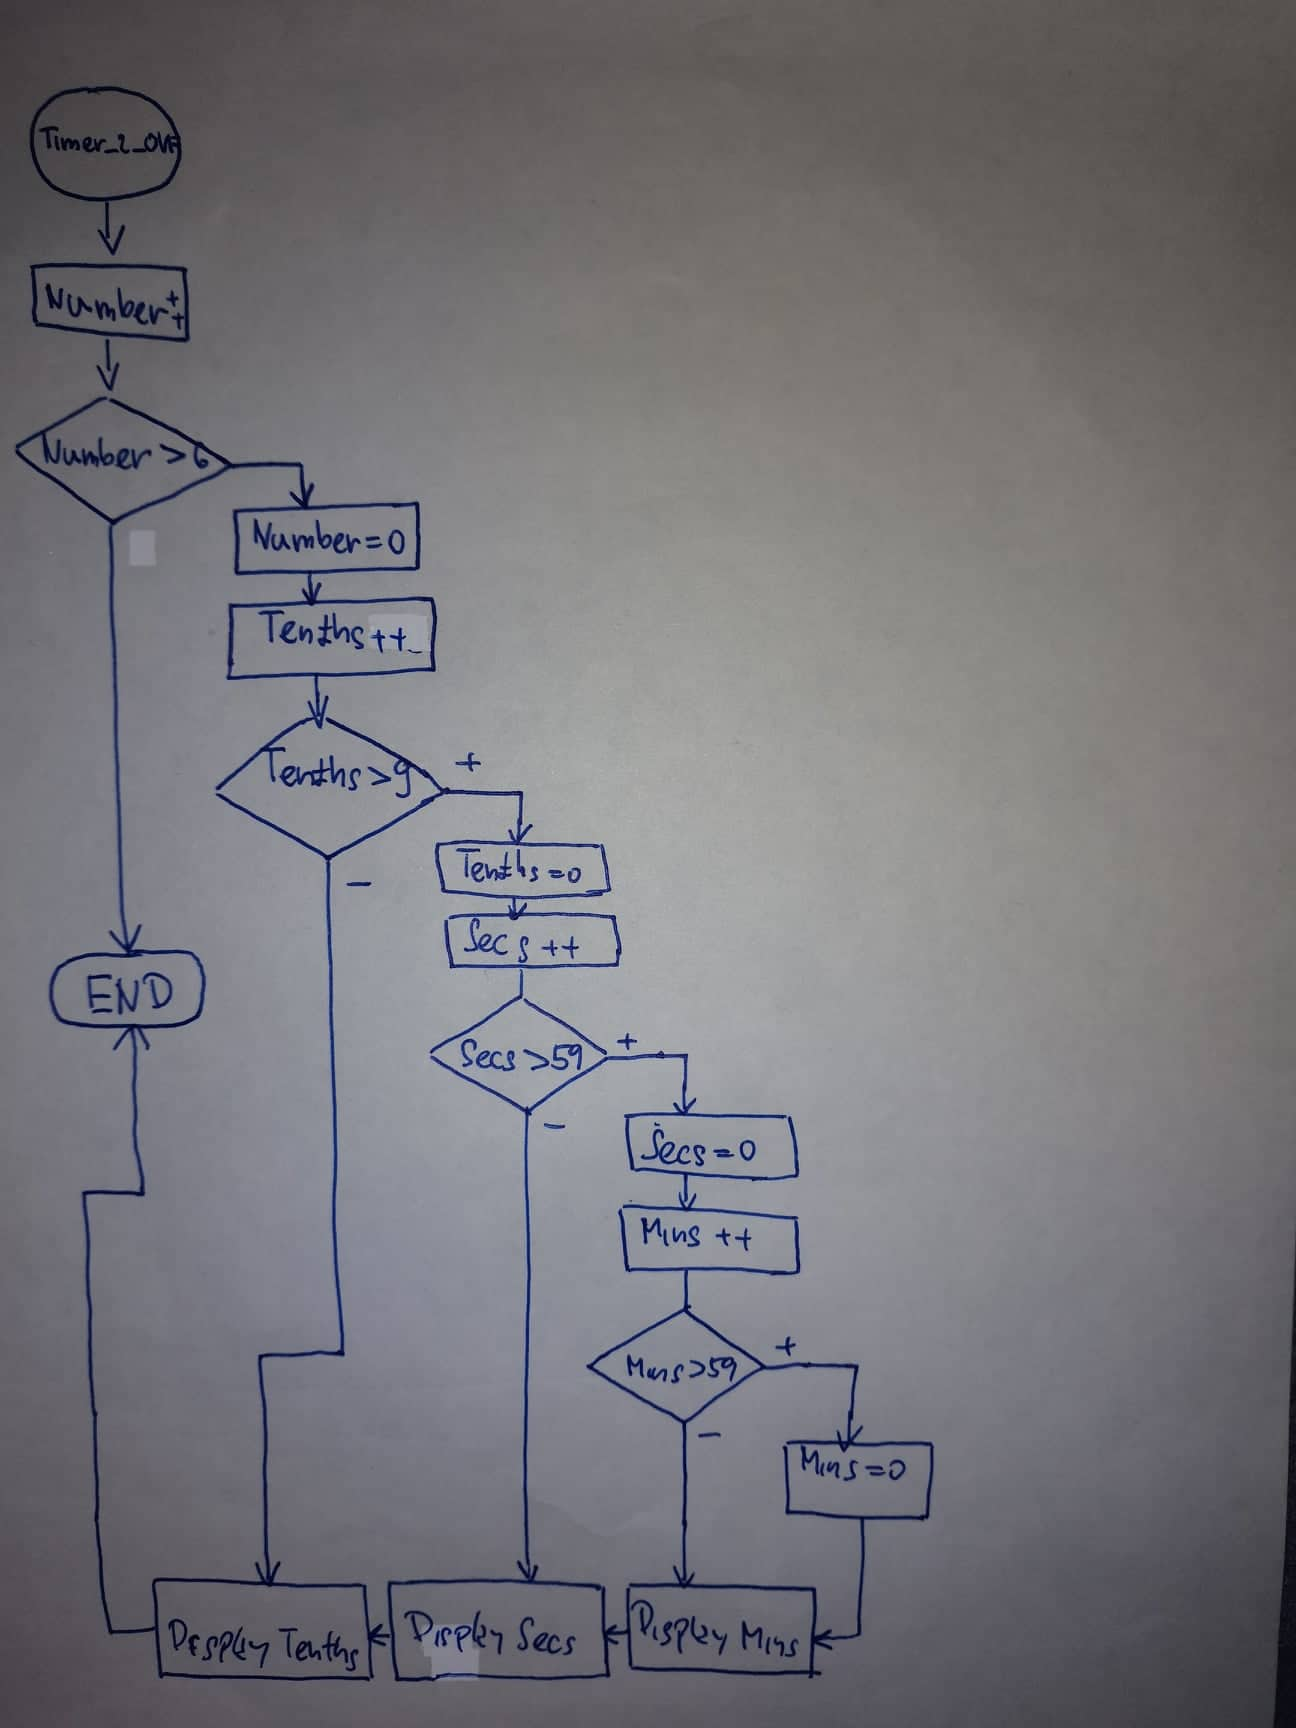 Timer_2_OVF
Number++
Number > 6
Number = 0
Tenths ++
Tenths > 9
+
-
Tenths = 0
Secs ++
END
Secs > 59
+
-
Secs = 0
Mins ++
Mins > 59
+
-
Mins = 0
Display Tenths
Display Secs
Display Mins